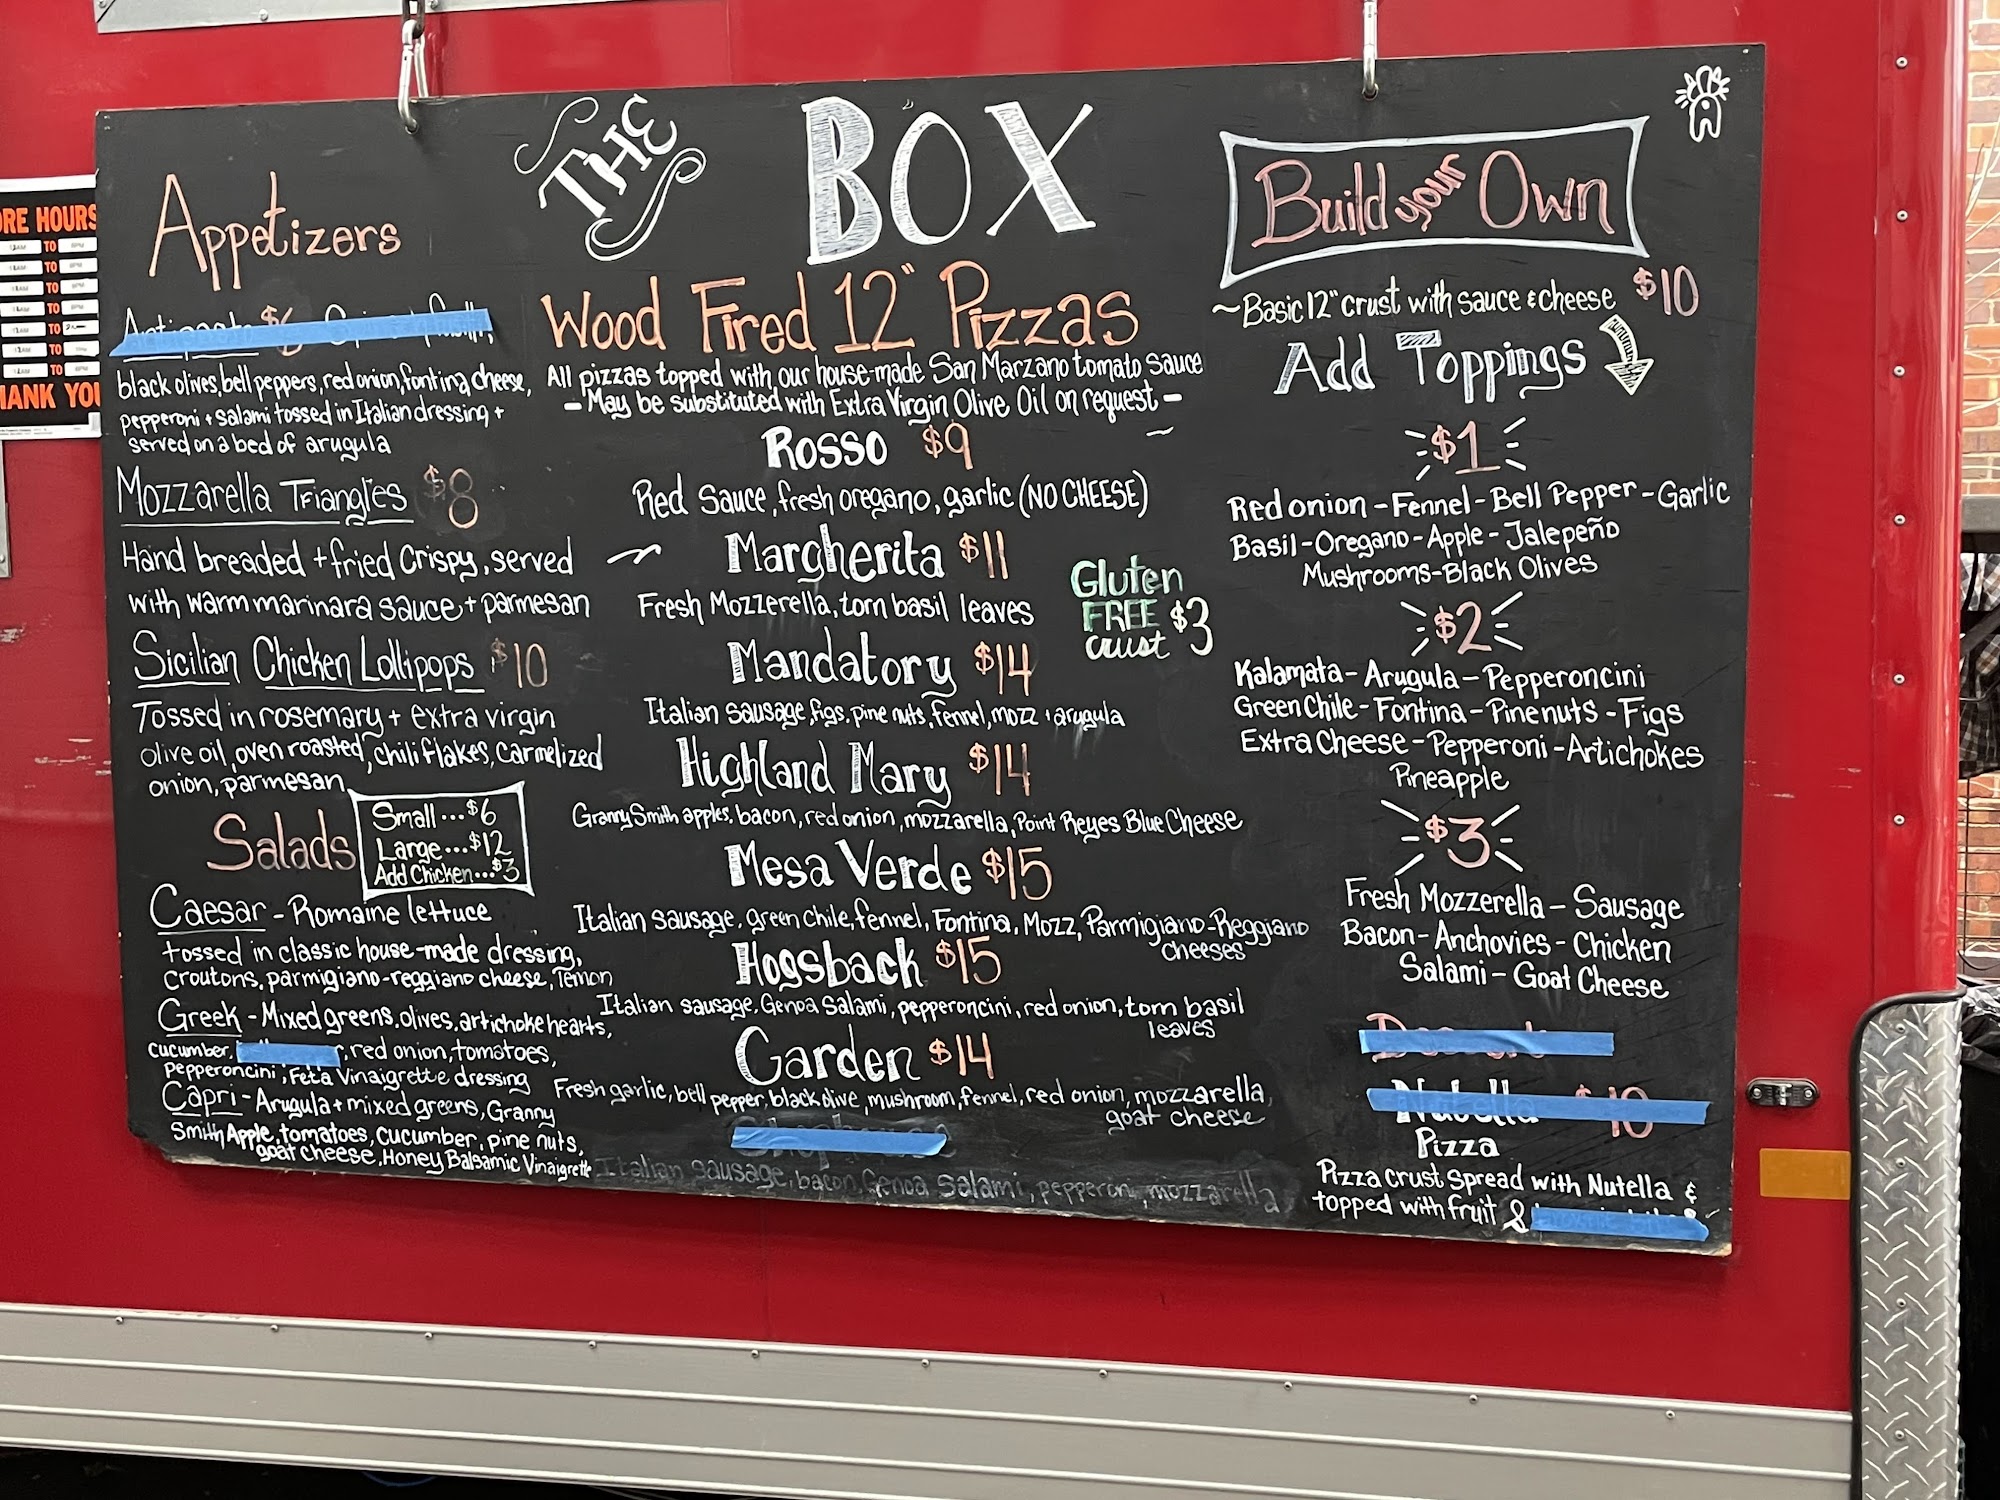 ORE HOURS
TO
TO
TO
TO
TO
TO
TO
HANK YOU
THE BOX
Appetizers
$6
black olives, bell peppers, red onion, fontina cheese,
pepperoni + salami tossed in Italian dressing +
served on a bed of arugula
Mozzarella Triangles $8
Hand breaded + fried crispy, served
with warm marinara sauce + parmesan
Sicilian Chicken Lollipops $10
Tossed in rosemary + extra virgin
olive oil, oven roasted, chili flakes, carmelized
onion, parmesan
Salads
Small...$6
Large...$12
Add Chicken...$3
Caesar - Romaine lettuce
tossed in classic house-made dressing,
croutons, parmigiano-reggiano cheese, lemon
Greek - Mixed greens, olives, artichoke hearts,
cucumber, red onion, tomatoes,
pepperoncini, Feta Vinaigrette dressing
Capri - Arugula + mixed greens, Granny
Smith Apple, tomatoes, cucumber, pine nuts,
goat cheese, Honey Balsamic Vinaigrette
Wood Fired 12" Pizzas
All pizzas topped with our house-made San Marzano tomato sauce
- May be substituted with Extra Virgin Olive Oil on request -
Rosso $9
Red Sauce, fresh oregano, garlic (NO CHEESE)
Margherita $11
Fresh Mozzerella, torn basil leaves
Gluten
FREE
crust $3
Mandatory $14
Italian sausage, figs, pine nuts, fennel, mozz + arugula
Highland Mary $14
Granny Smith apples, bacon, red onion, mozzarella, Point Reyes Blue Cheese
Mesa Verde $15
Italian sausage, green chile, fennel, Fontina, Mozz, Parmigiano-Reggiano
cheeses
Hogsback $15
Italian sausage, Genoa Salami, pepperoncini, red onion, torn basil
leaves
Garden $14
Fresh garlic, bell pepper, black olive, mushroom, fennel, red onion, mozzarella,
goat cheese
Italian sausage, bacon, Genoa Salami, pepperoni, mozzarella
Build your Own
~Basic 12" crust with sauce & cheese $10
Add Toppings
$1
Red onion - Fennel - Bell Pepper - Garlic
Basil - Oregano - Apple - Jalepeño
Mushrooms - Black Olives
$2
Kalamata - Arugula - Pepperoncini
Green Chile - Fontina - Pinenuts - Figs
Extra Cheese - Pepperoni - Artichokes
Pineapple
$3
Fresh Mozzerella - Sausage
Bacon - Anchovies - Chicken
Salami - Goat Cheese
Nutella $10
Pizza
Pizza crust spread with Nutella &
topped with fruit &